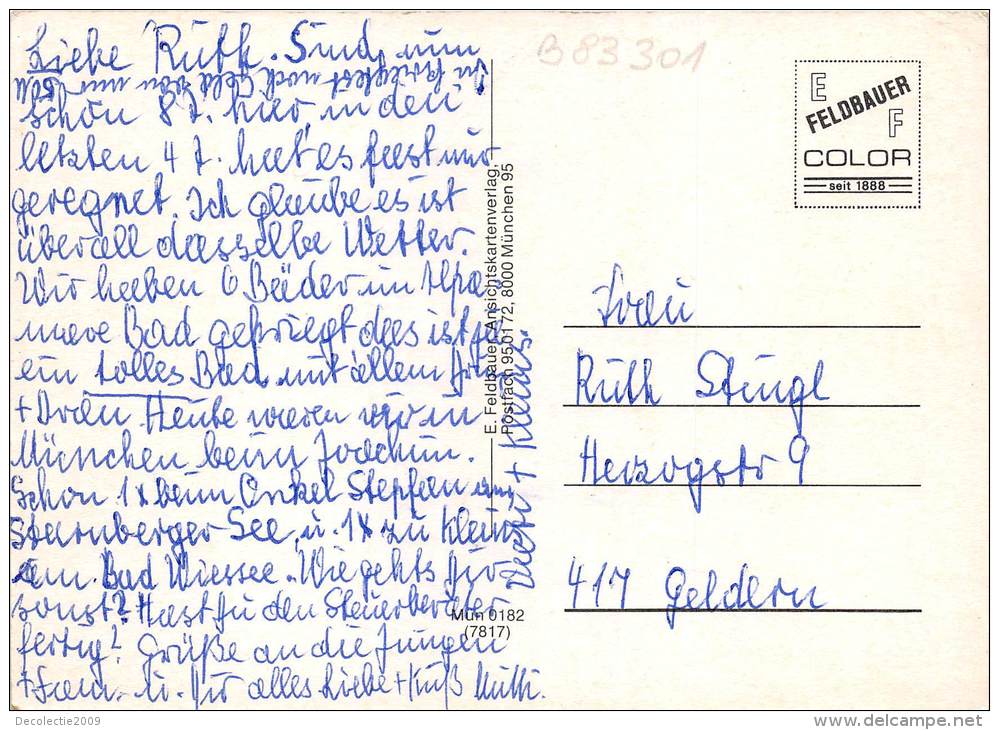 Liebe Ruth. Sind nun
Du kriegtest noch Geld von nun
schön 8 T. hier, in den
letzten 4 T. hat es fast nur
geregnet. Ich glaube es ist
überall dasselbe Wetter.
Wir haben 6 Bäder im Alpa
mare Bad gekriegt das ist ja
ein tolles Bad, mit allem
+ Dran. Heute waren wir in
München beim Joachim.
Schon 1x beim Onkel Stephan am
Starnberger See, u. 1x zu Klein
am Bad Wiessee. Wie gehts Dir
sonst? Hast Du den Steuerberater
fertig? Grüße an die Jungen
+ Fam. u. Dir alles Liebe + Kuß Mutti.
+ Klaus.
B 83301
E. Feldbauer, Ansichtskartenverlag,
Postfach 950172, 8000 München 95
Mün 0182
(7817)
E
FELDBAUER
F
COLOR
seit 1888
Frau
Ruth Stingl
Herzogstr 9
417 Geldern
Decolectie2009
delcampe.net